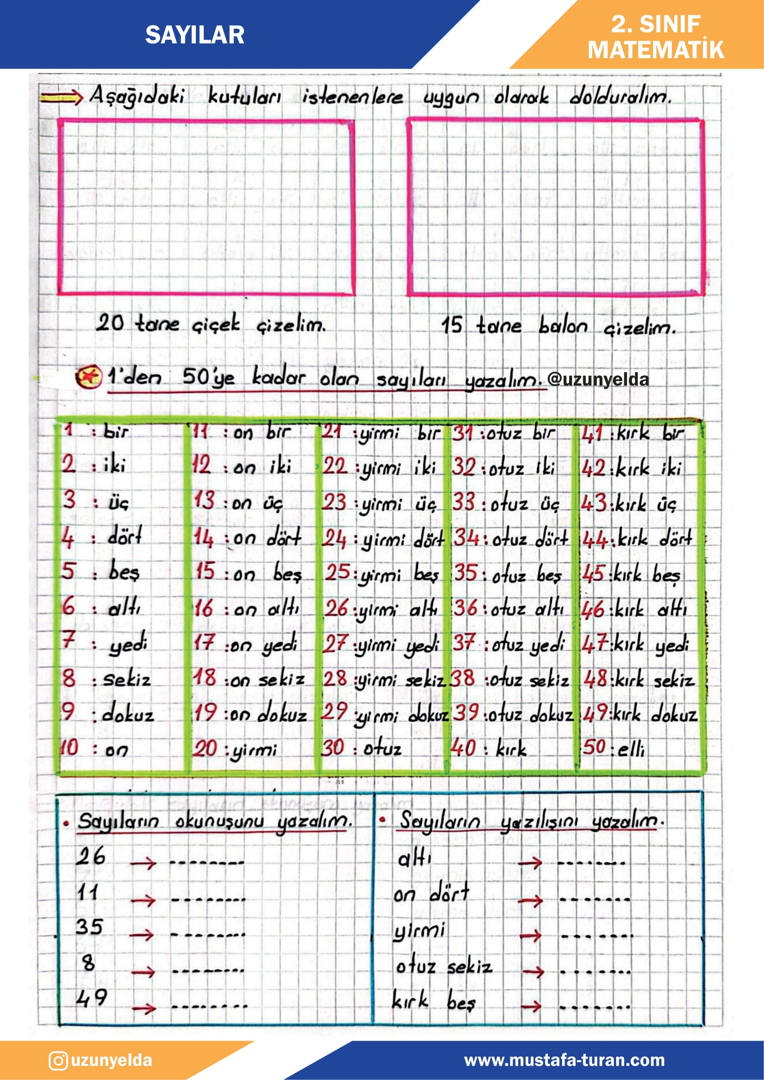 SAYILAR
2. SINIF
MATEMATİK
Aşağıdaki kutuları istenenlere uygun olarak dolduralım.
20 tane çiçek çizelim.
15 tane balon çizelim.
1'den 50'ye kadar olan sayıları yazalım. @uzunyelda
1 : bir 11 : on bir 21 : yirmi bir 31 : otuz bir 41 : kırk bir
2 : iki 12 : on iki 22 : yirmi iki 32 : otuz iki 42 : kırk iki
3 : üç 13 : on üç 23 : yirmi üç 33 : otuz üç 43 : kırk üç
4 : dört 14 : on dört 24 : yirmi dört 34 : otuz dört 44 : kırk dört
5 : beş 15 : on beş 25 : yirmi beş 35 : otuz beş 45 : kırk beş
6 : altı 16 : on altı 26 : yirmi altı 36 : otuz altı 46 : kırk altı
7 : yedi 17 : on yedi 27 : yirmi yedi 37 : otuz yedi 47 : kırk yedi
8 : sekiz 18 : on sekiz 28 : yirmi sekiz 38 : otuz sekiz 48 : kırk sekiz
9 : dokuz 19 : on dokuz 29 : yirmi dokuz 39 : otuz dokuz 49 : kırk dokuz
10 : on 20 : yirmi 30 : otuz 40 : kırk 50 : elli
• Sayıların okunuşunu yazalım.
26 → ........
11 → ........
35 → ........
8 → ........
49 → ........
• Sayıların yazılışını yazalım.
altı → .......
on dört → .......
yirmi → .......
otuz sekiz → .......
kırk beş → .......
uzunyelda
www.mustafa-turan.com